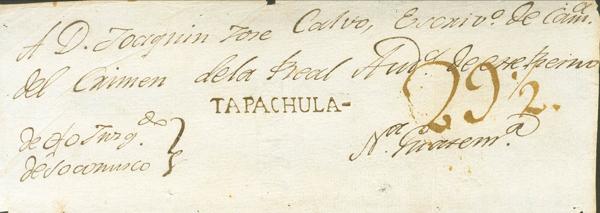 A D. Joaquin Jose Calvo, Escriv.º de Cam.ª
del Crimen dela Real Aud.ª de este Reino
TAPACHULA-
29.2.
de ofo Juzg.do
de Soconusco
N.ª Guatem.ª